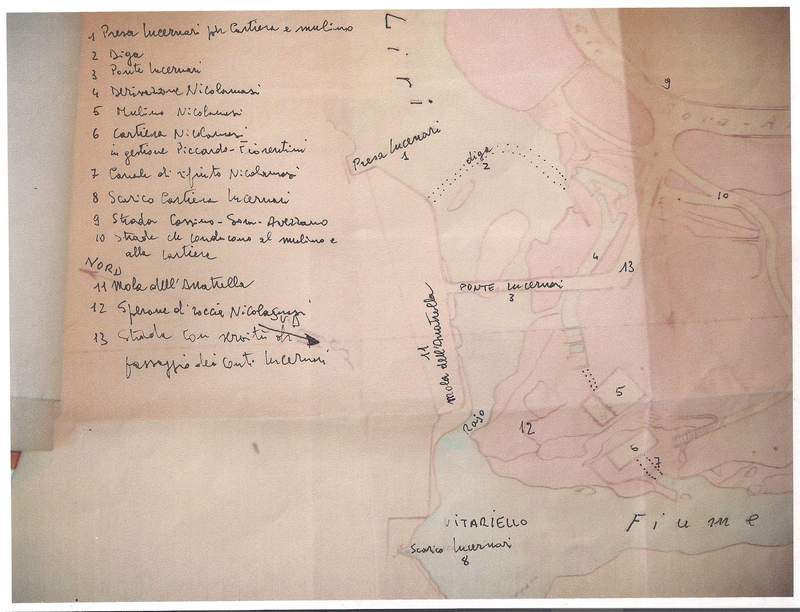 1 Presa Lucernari per Cartiera e mulino
2 Diga
3 Ponte Lucernari
4 Derivazione Nicolamasi
5 Mulino Nicolamasi
6 Cartiera Nicolamasi
in gestione Piccardo-Fiorentini
7 Canale di rifiuto Nicolamasi
8 Scarico Cartiera Lucernari
9 Strada Cassino-Sora-Avezzano
10 Strade che conducono al mulino e
alla cartiera
NORD
11 Mola dell'Anatrella
12 Sperone di roccia
13 Strada con servitù di
passaggio dei Conti Lucernari
Liri
Presa Lucernari
1
diga
2
9
Sora-A
10
4
13
PONTE Lucernari
3
11
Mola dell'Anatrella
5
12
6
7
VITARIELLO
Fiume
Scarico Lucernari
8